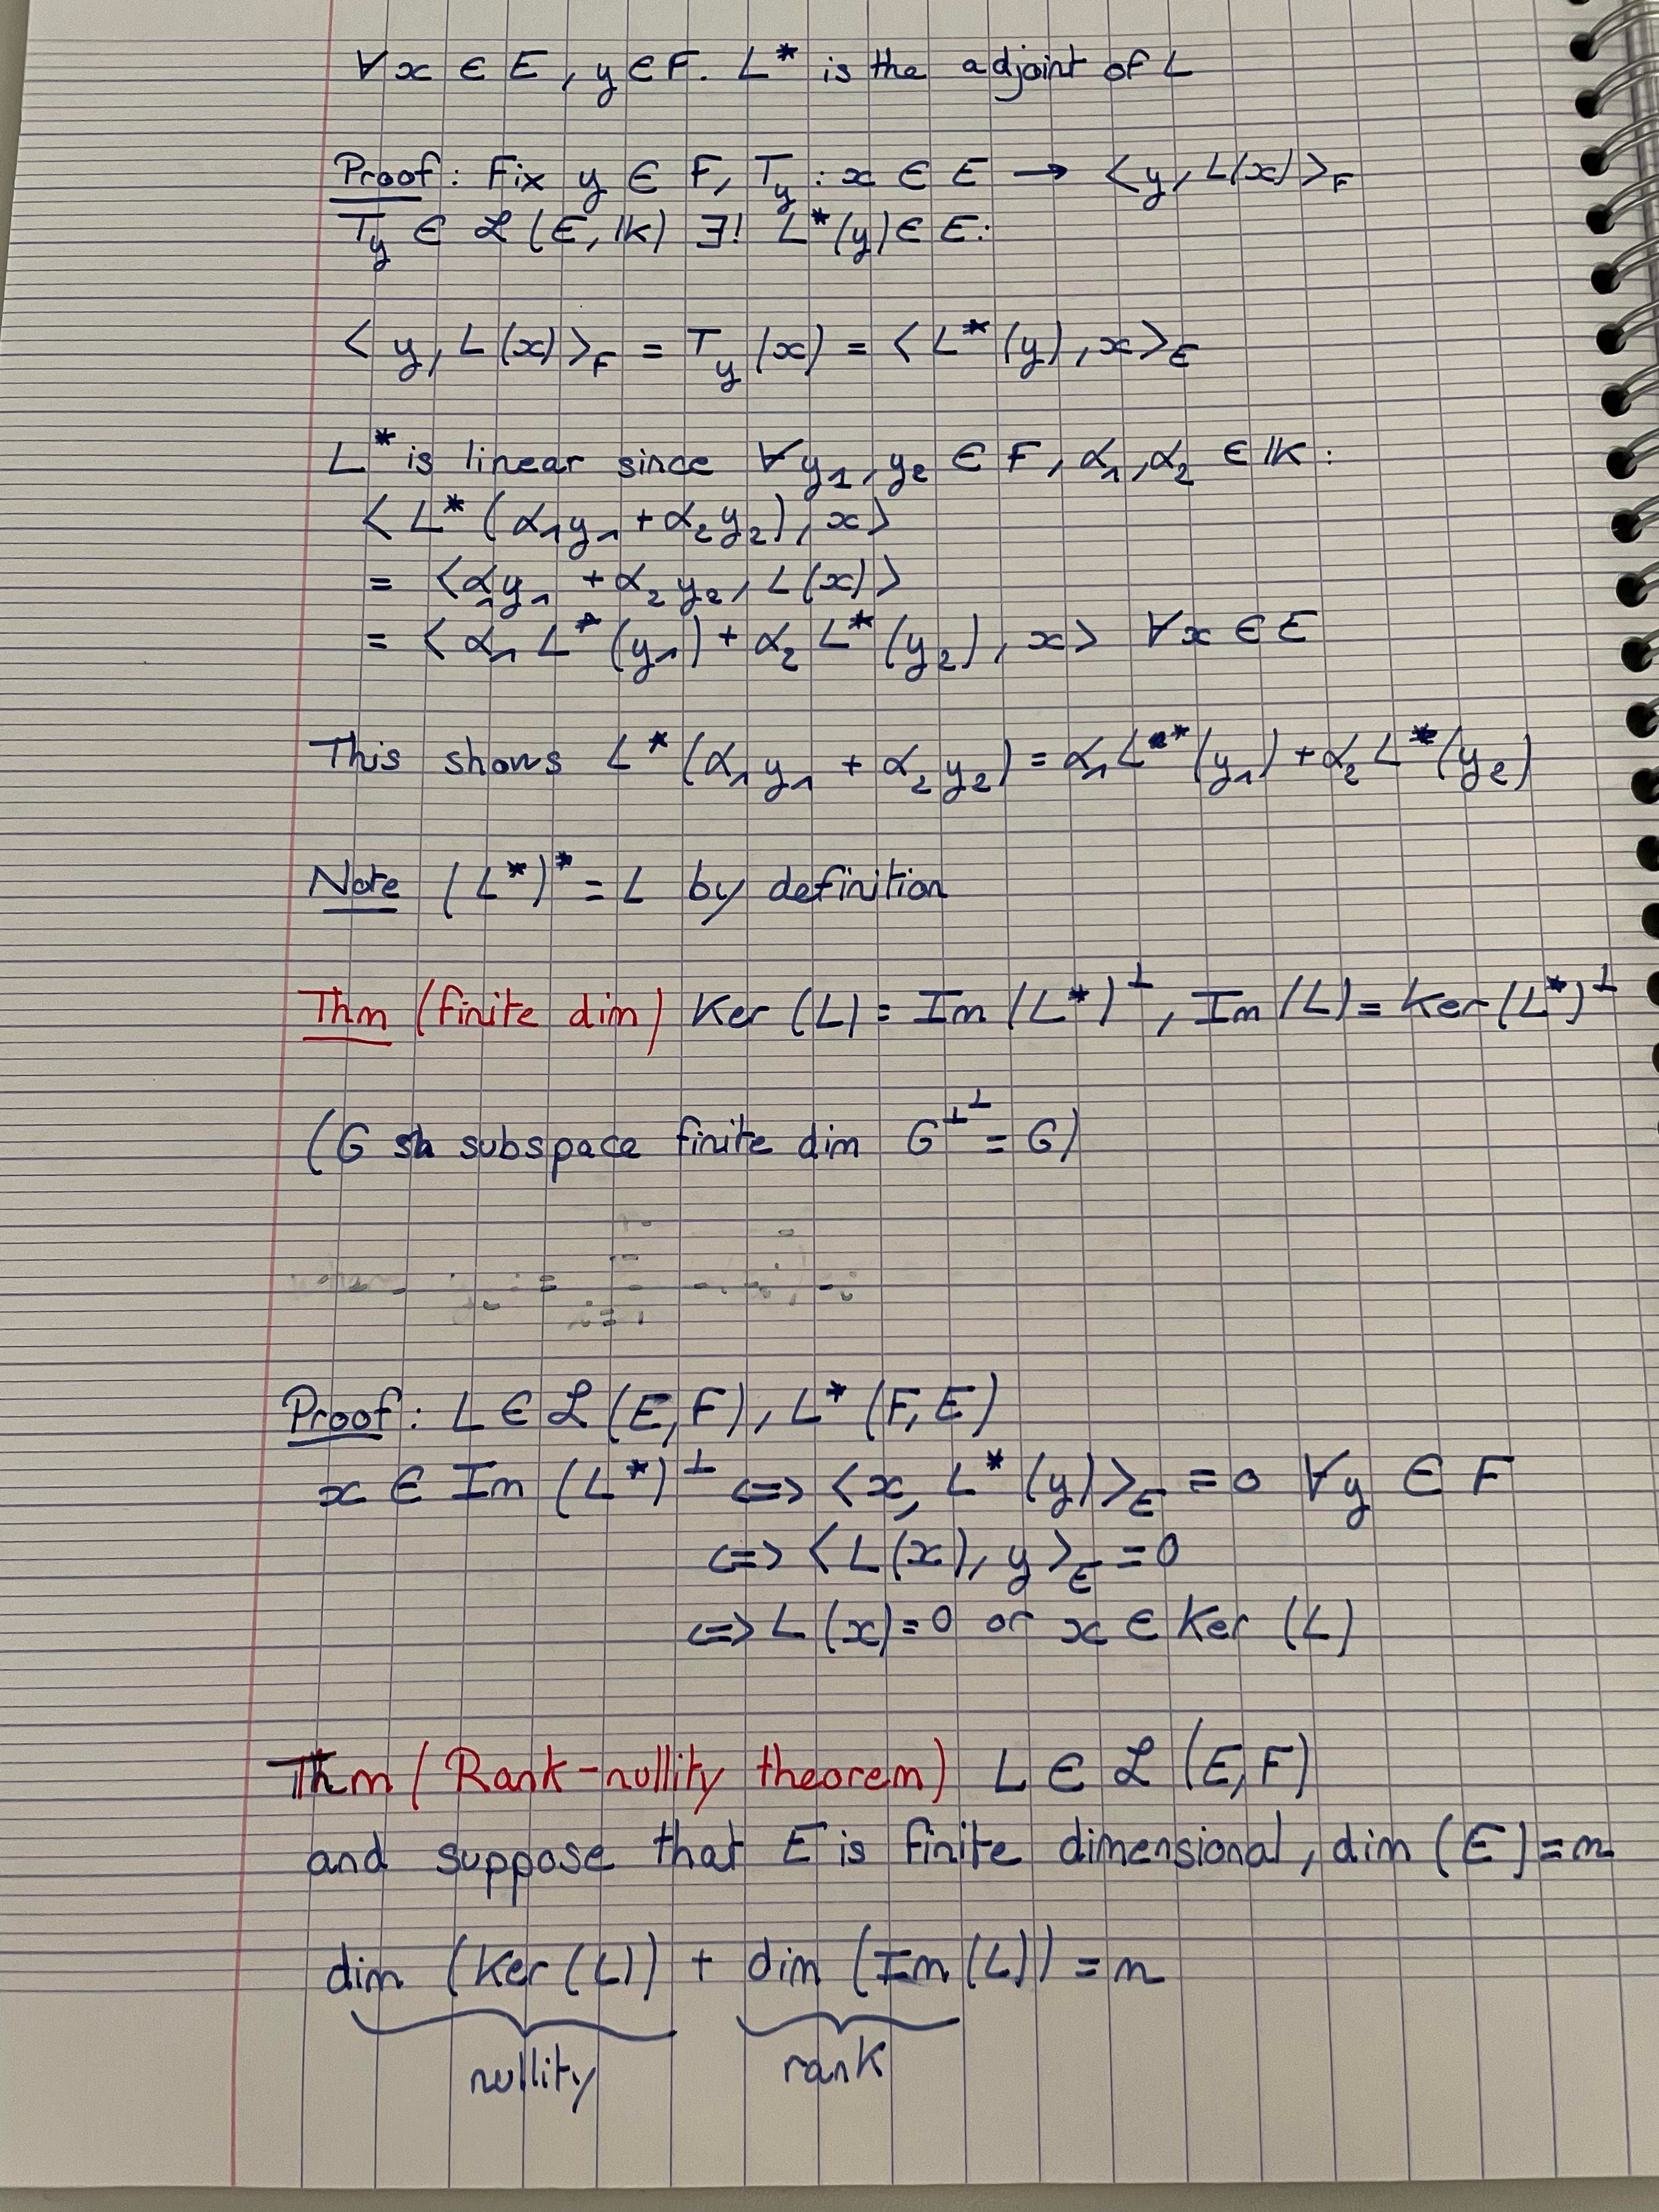 ∀x ∈ E, y ∈ F. L* is the adjoint of L
Proof: Fix y ∈ F, T_y : x ∈ E → ⟨y, L(x)⟩_F
T_y ∈ ℒ(E, 𝕂) ∃! L*(y) ∈ E:
⟨y, L(x)⟩_F = T_y(x) = ⟨L*(y), x⟩_E
L* is linear since ∀y₁, y₂ ∈ F, α₁, α₂ ∈ 𝕂:
⟨L*(α₁y₁ + α₂y₂), x⟩
= ⟨α₁y₁ + α₂y₂, L(x)⟩
= ⟨α₁L*(y₁) + α₂L*(y₂), x⟩ ∀x ∈ E
This shows L*(α₁y₁ + α₂y₂) = α₁L*(y₁) + α₂L*(y₂)
Note (L*)* = L by definition
Thm (finite dim) Ker(L) = Im(L*)^⊥, Im(L) = Ker(L*)^⊥
(G subspace finite dim G^⊥⊥ = G)
Proof: L ∈ ℒ(E,F), L*(F,E)
x ∈ Im(L*)^⊥ <=> ⟨x, L*(y)⟩_E = 0 ∀y ∈ F
<=> ⟨L(x), y⟩_E = 0
<=> L(x) = 0 or x ∈ Ker(L)
Thm (Rank-nullity theorem) L ∈ ℒ(E,F)
and suppose that E is finite dimensional, dim(E) = n
dim(Ker(L)) + dim(Im(L)) = n
nullity rank